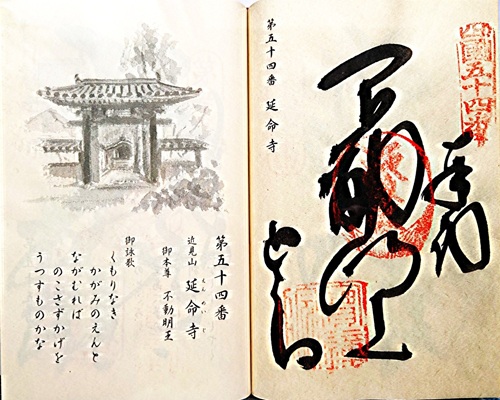 四國五十四番
奉納
不動明王
第五十四番 延命寺
第五十四番
近見山 延命寺
えんめいじ
御本尊 不動明王
御詠歌
くもりなき
かがみのえんと
ながむれば
のこさずかげを
うつすものかな